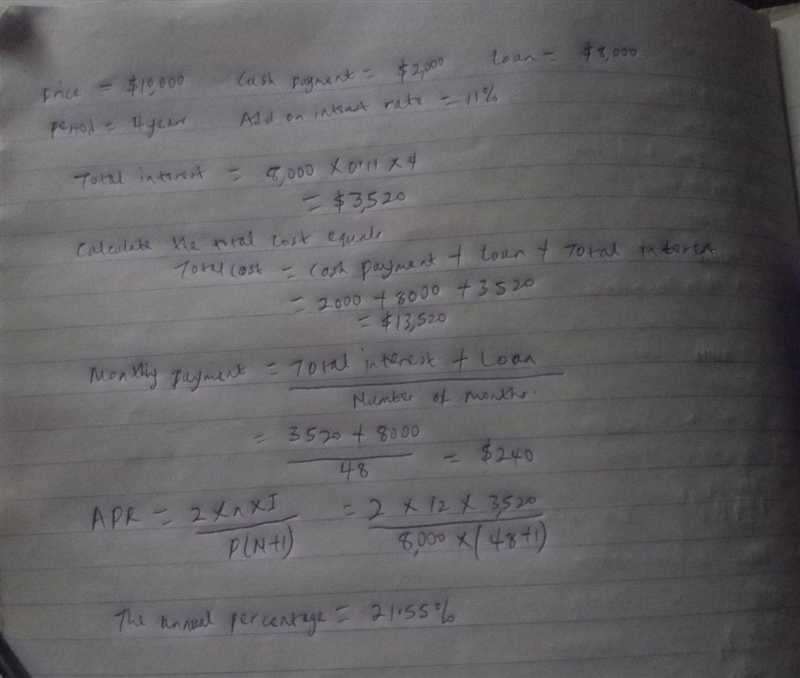 Price = $10,000 Cash payment = $2,000 Loan = $8,000
Period = 4 years Add on interest rate = 11%
Total interest = 8,000 X 0.11 X 4
= $3,520
Calculate the total cost equals
Total cost = Cash payment + Loan + Total interest
= 2000 + 8000 + 3520
= $13,520
Monthly payment = Total interest + Loan
Number of months.
= 3520 + 8000
48 = $240
APR = 2 X n X I = 2 X 12 X 3,520
P(N+1) 8,000 X (48+1)
The annual percentage = 21.55%